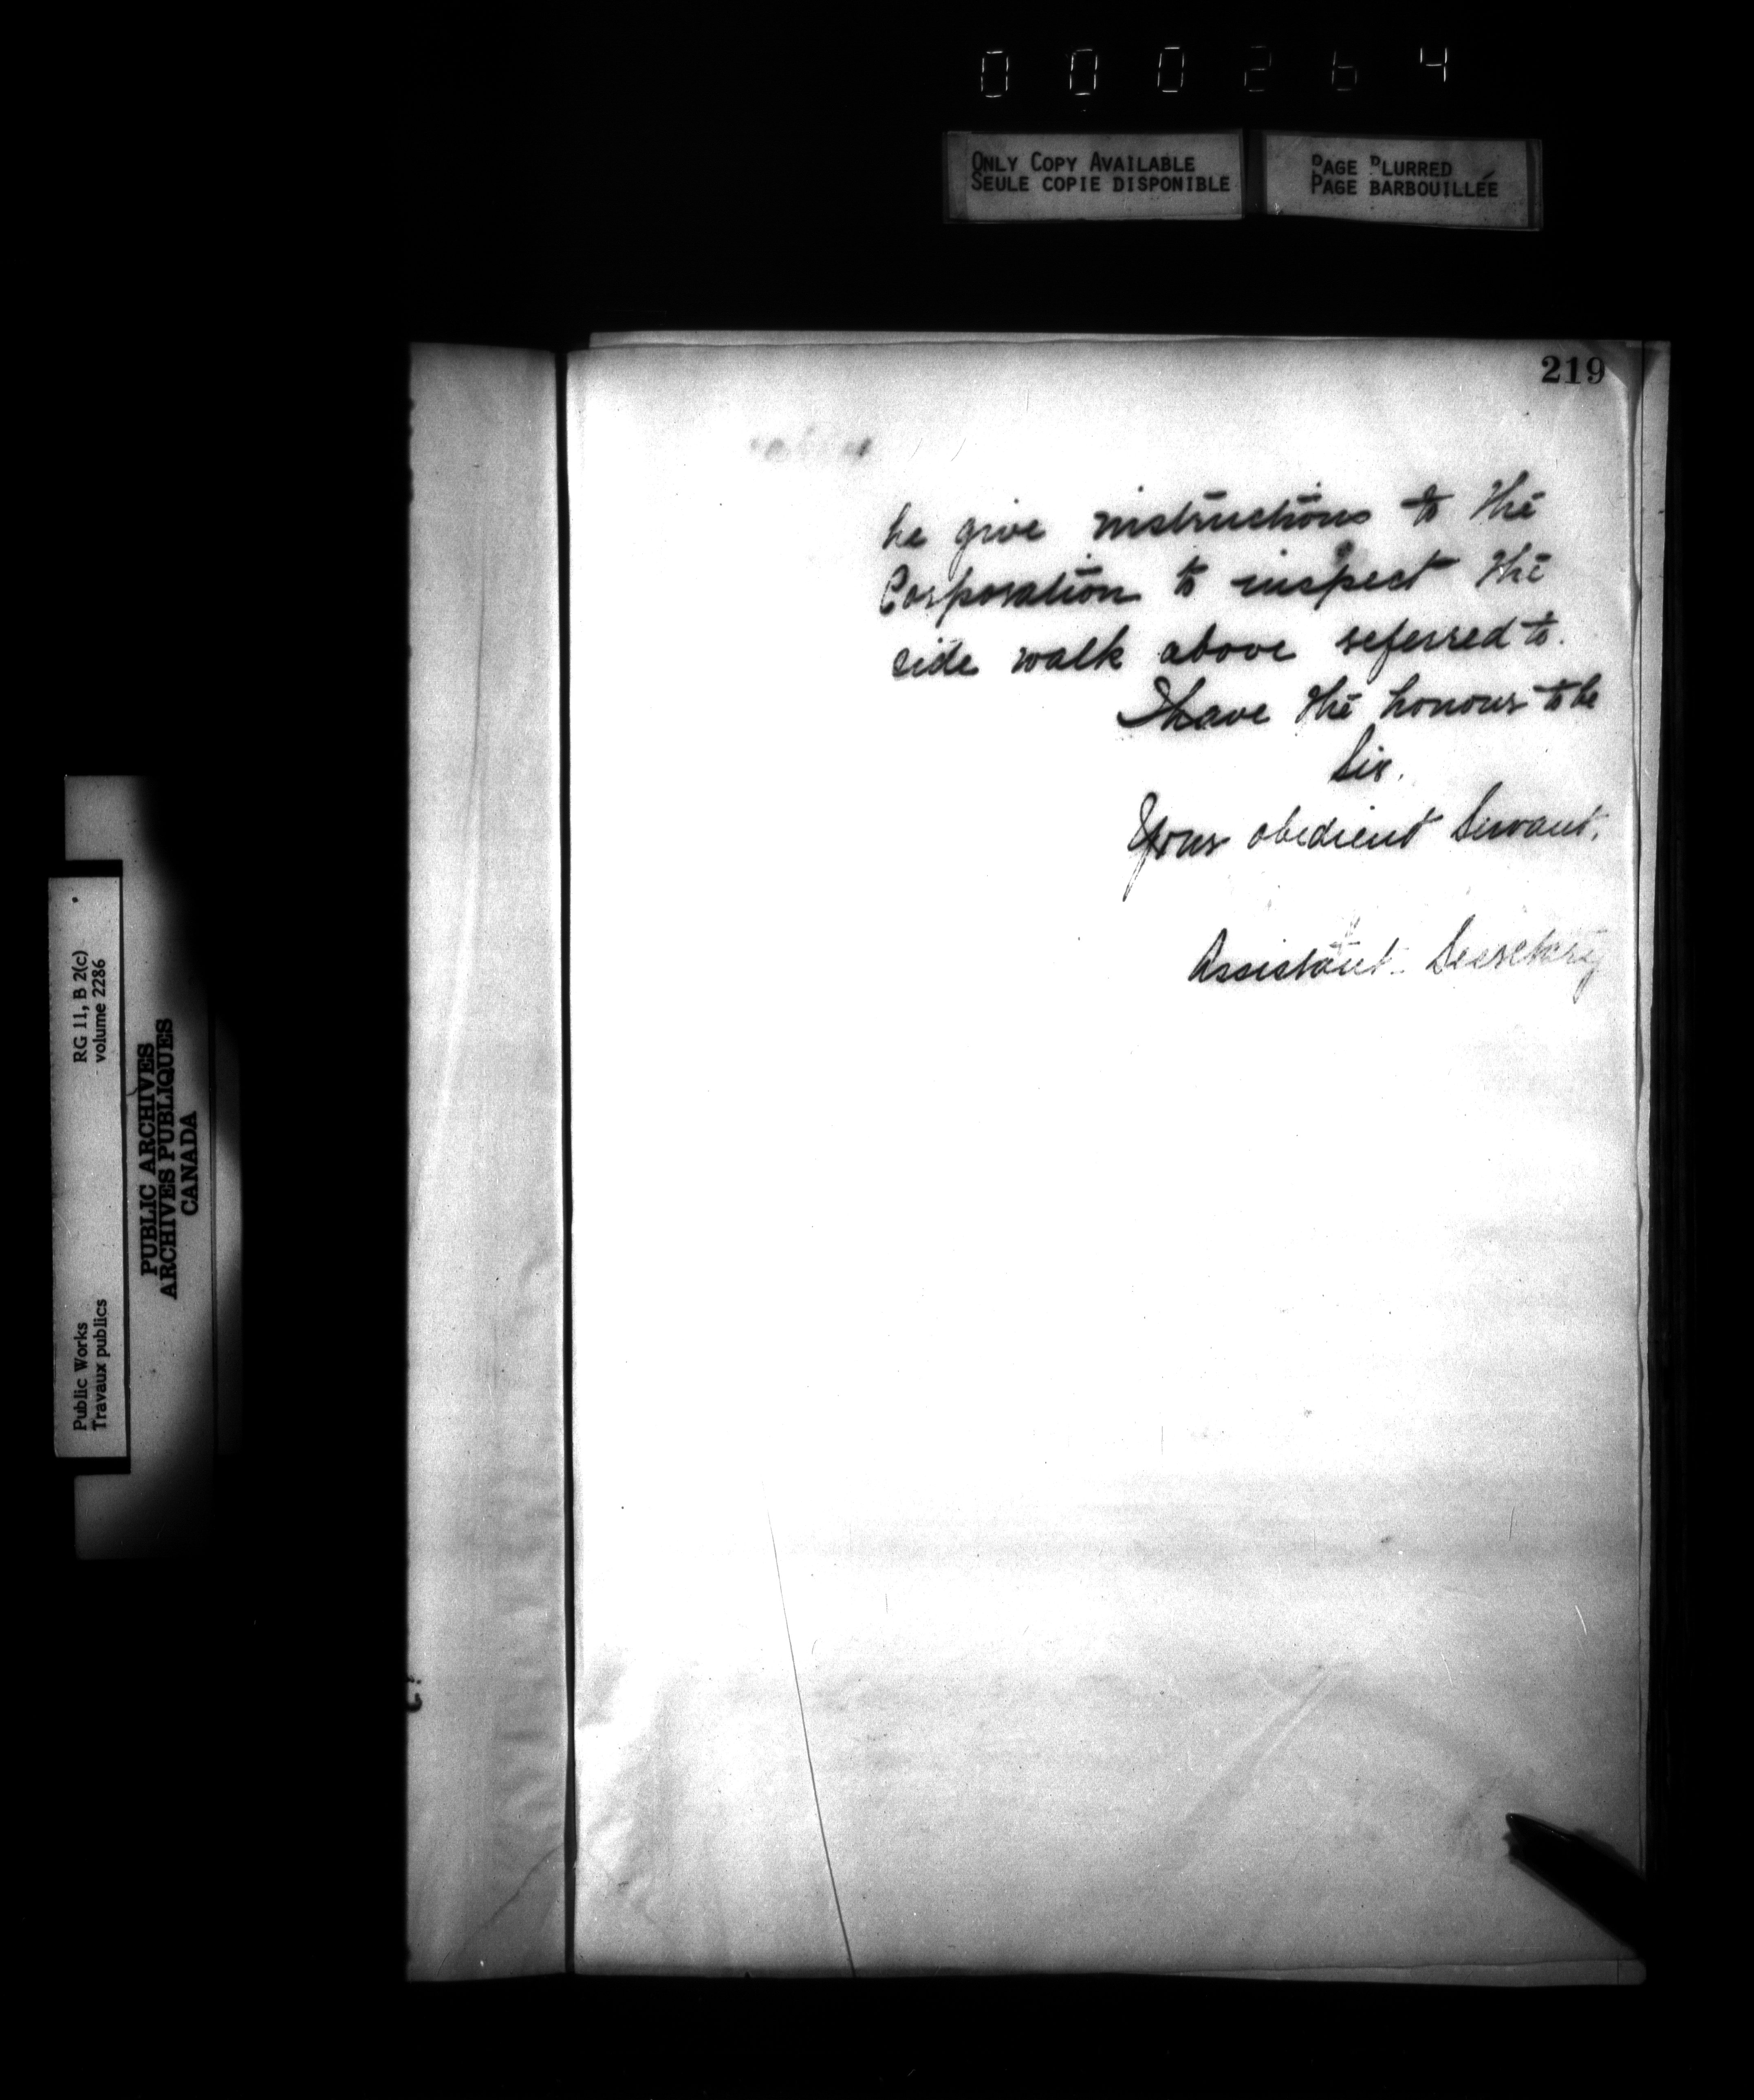 000264
ONLY COPY AVAILABLE
SEULE COPIE DISPONIBLE
PAGE BLURRED
PAGE BARBOUILLÉE
219
he give instructions to the
Corporation to inspect the
side walk above referred to.
I have the honour to be
Sir.
Your obedient Servant.
Assistant Secretary
RG 11, B 2(c)
volume 2286
Public Works
Travaux publics
PUBLIC ARCHIVES
ARCHIVES PUBLIQUES
CANADA